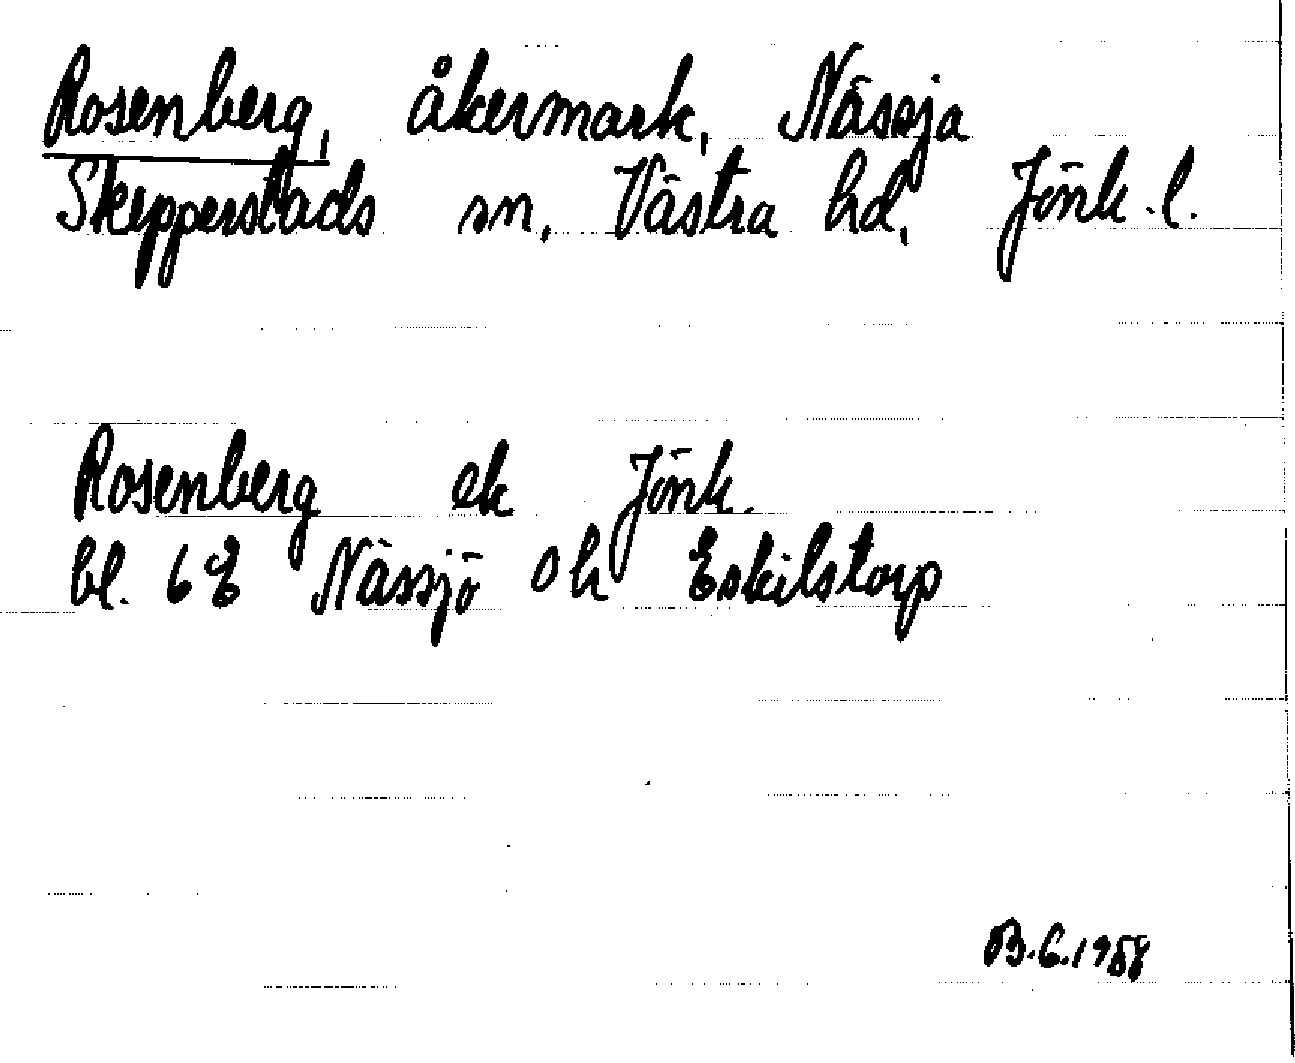 Rosenberg, åkermark, Nässja
Skepperstads sn, Västra hd, Jönk. l.
Rosenberg ek Jönk.
bl. 6E Nässjö Oh Eskilstorp
B.G.1958